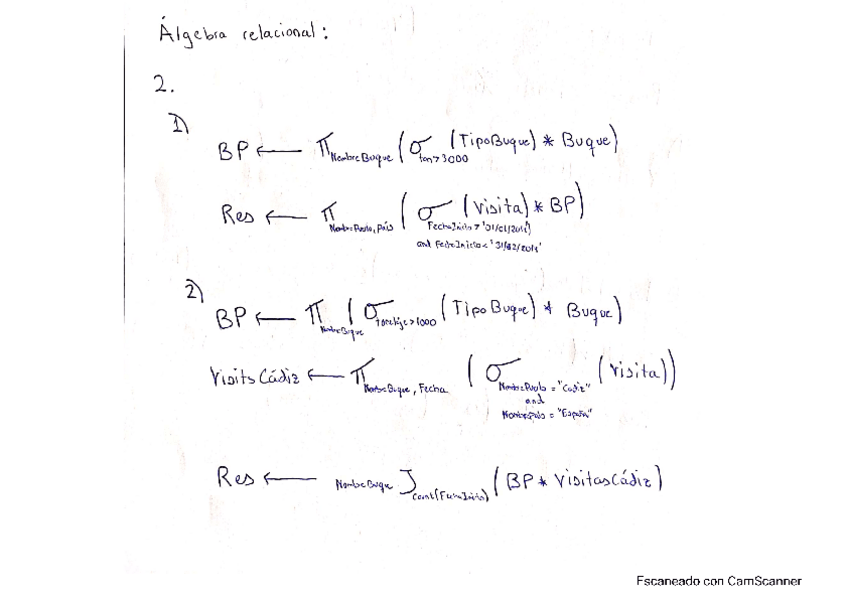 Álgebra relacional:
2.
1)
BP ← π NombreBuque (σ ton>3000 (TipoBuque) * Buque)
Res ← π NombrePuerto, País (σ (Visita) * BP)
FechaInicio > '01/01/2014'
and FechaInicio < '31/12/2014'
2)
BP ← π NombreBuque (σ tonelaje>1000 (TipoBuque) * Buque)
VisitsCádiz ← π NombreBuque, Fecha (σ (Visita))
NombrePuerto = "Cadiz"
and
= "España"
Res ← NombreBuque ℑ count(FechaInicio) (BP * VisitasCádiz)
Escaneado con CamScanner